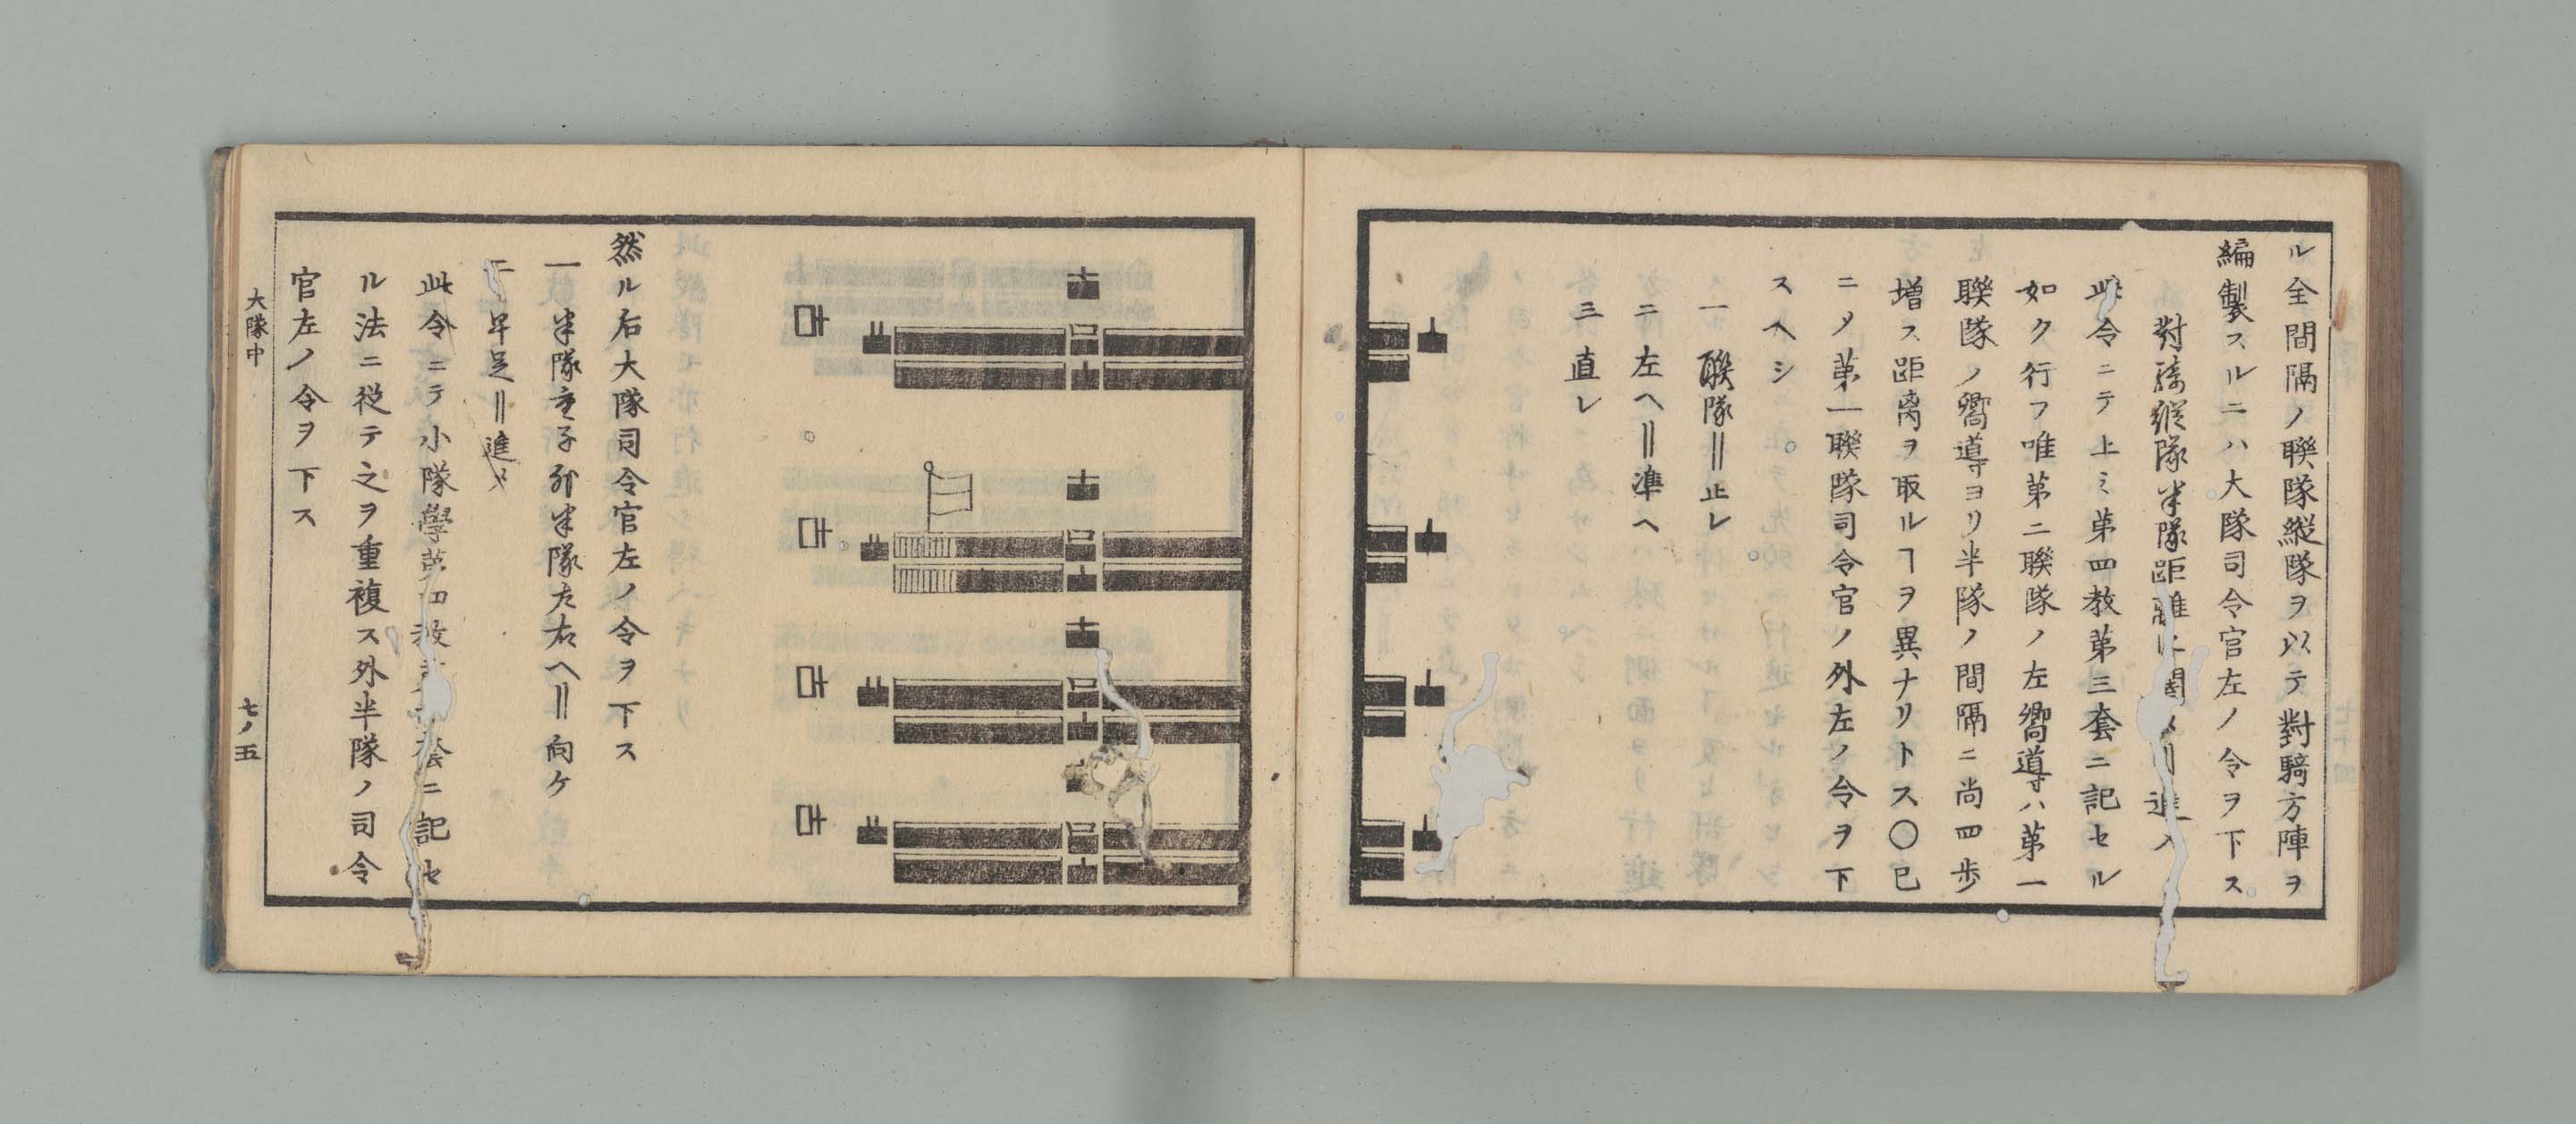 ル全間隔ノ聯隊縦隊ヲ以テ對騎方陣ヲ
編製スルニハ大隊司令官左ノ令ヲ下ス
對騎縦隊半隊距離ニ 進メ
此令ニテ上ミ第四教第三套ニ記セル
如ク行フ唯第二聯隊ノ左嚮導ハ第一
聯隊ノ嚮導ヨリ半隊ノ間隔ニ尚四歩
増ス距离ヲ取ルヿヲ異ナリトス〇已
ニノ第一聯隊司令官ノ外左ノ令ヲ下
スヘシ
一 聯隊‖止レ
二 左ヘ‖準ヘ
三 直レ
然ル后大隊司令官左ノ令ヲ下ス
一 半隊 半隊左右ヘ‖向ケ
二 早足‖進メ
此令ニテ小隊學第四教 套ニ記セ
ル法ニ従テ之ヲ重複ス外半隊ノ司令
官左ノ令ヲ下ス
大隊中 七ノ五